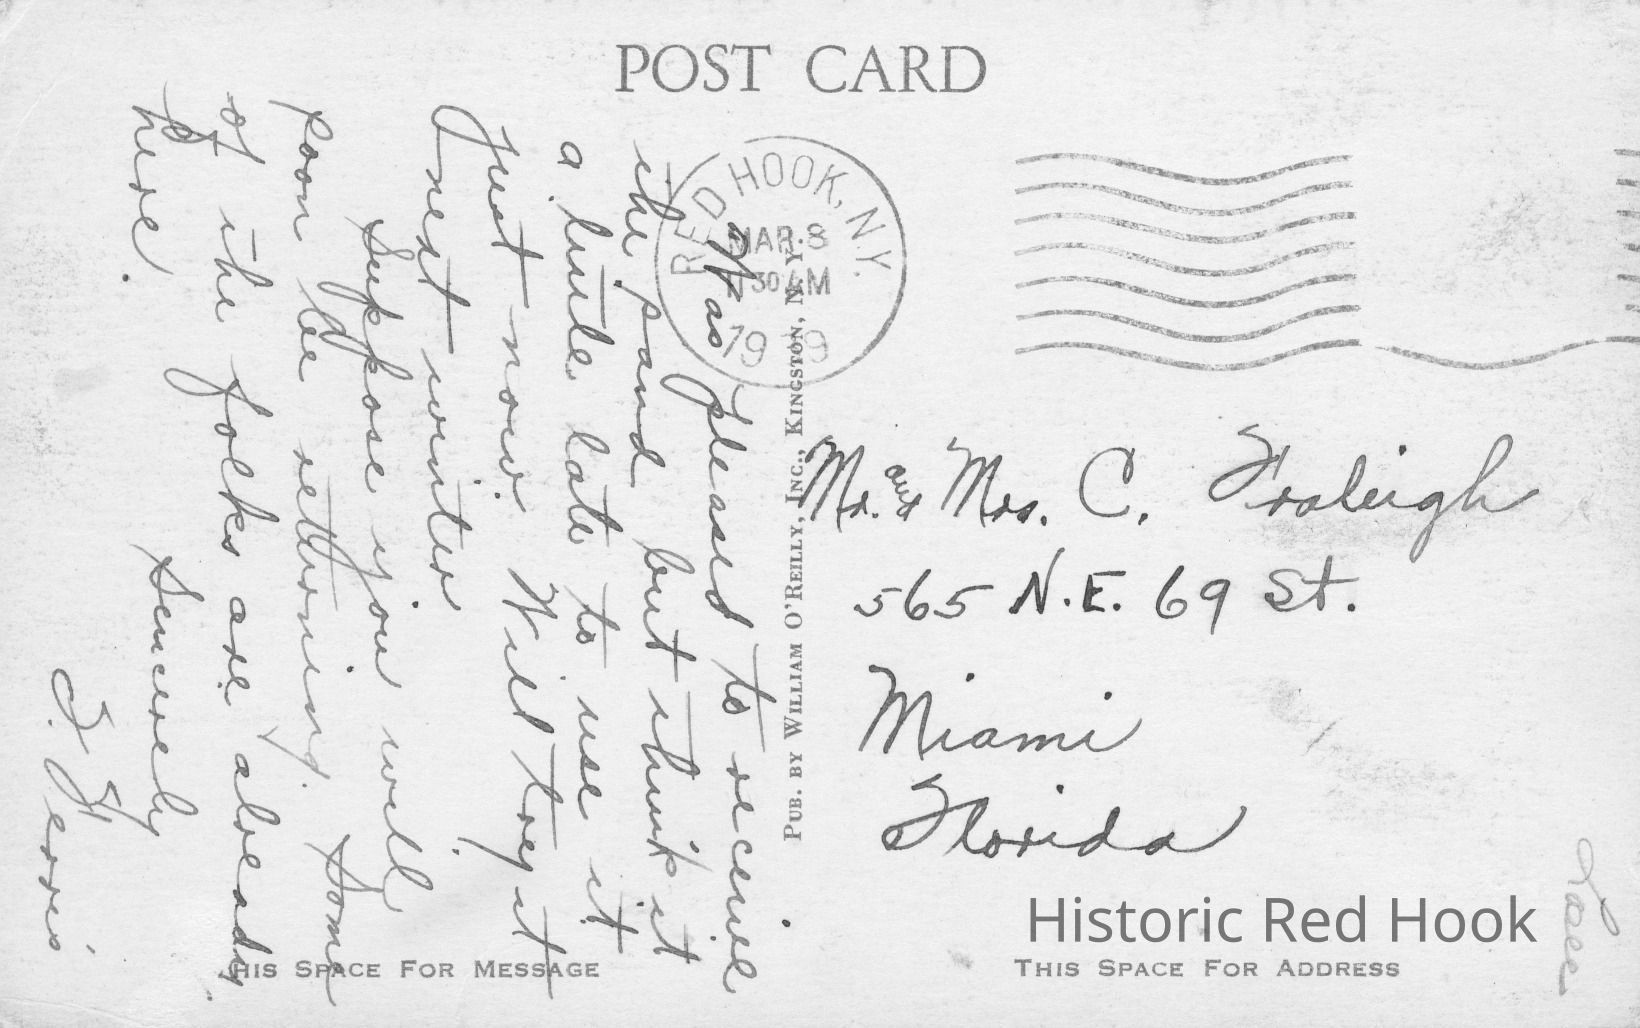 POST CARD
RED HOOK, N.Y.
MAR 8
30 AM
19 9
Was pleased to receive
the pand but think it
a little late to use it
just now. Will try it
next winter
Suppose you will
soon be returning. Some
of the folks are already
here.
Sincerely
Ferris
PUB. BY WILLIAM O'REILLY, INC., KINGSTON, N.Y.
Mr. and Mrs. C. Fraleigh
565 N.E. 69 St.
Miami
Florida
Historic Red Hook
THIS SPACE FOR MESSAGE
THIS SPACE FOR ADDRESS